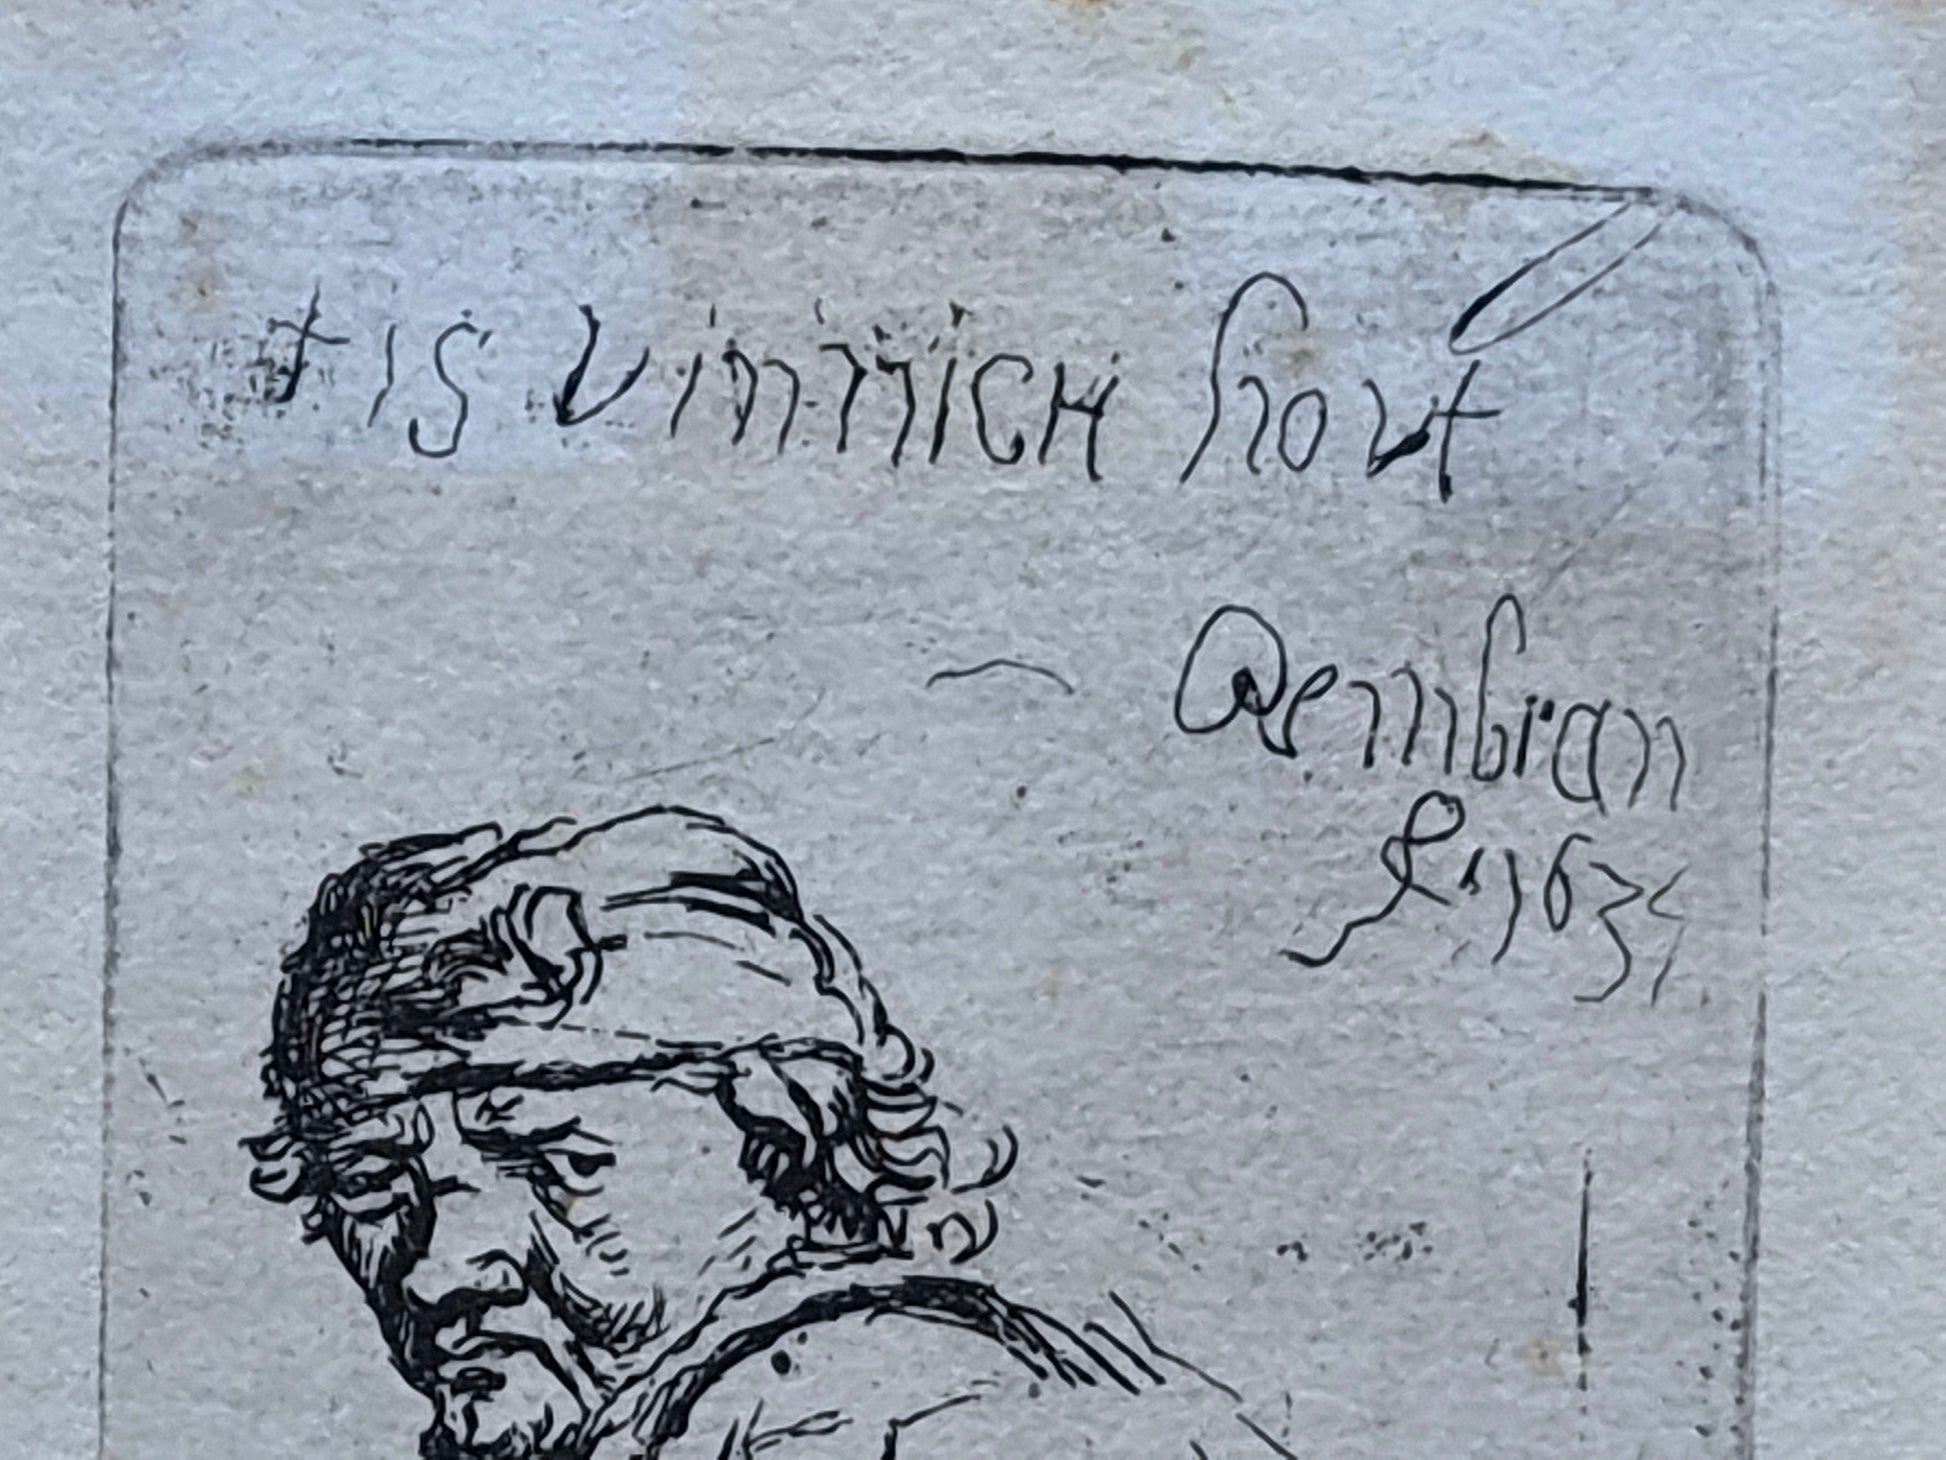 tis vinnich kout
Rembran
f. 1634